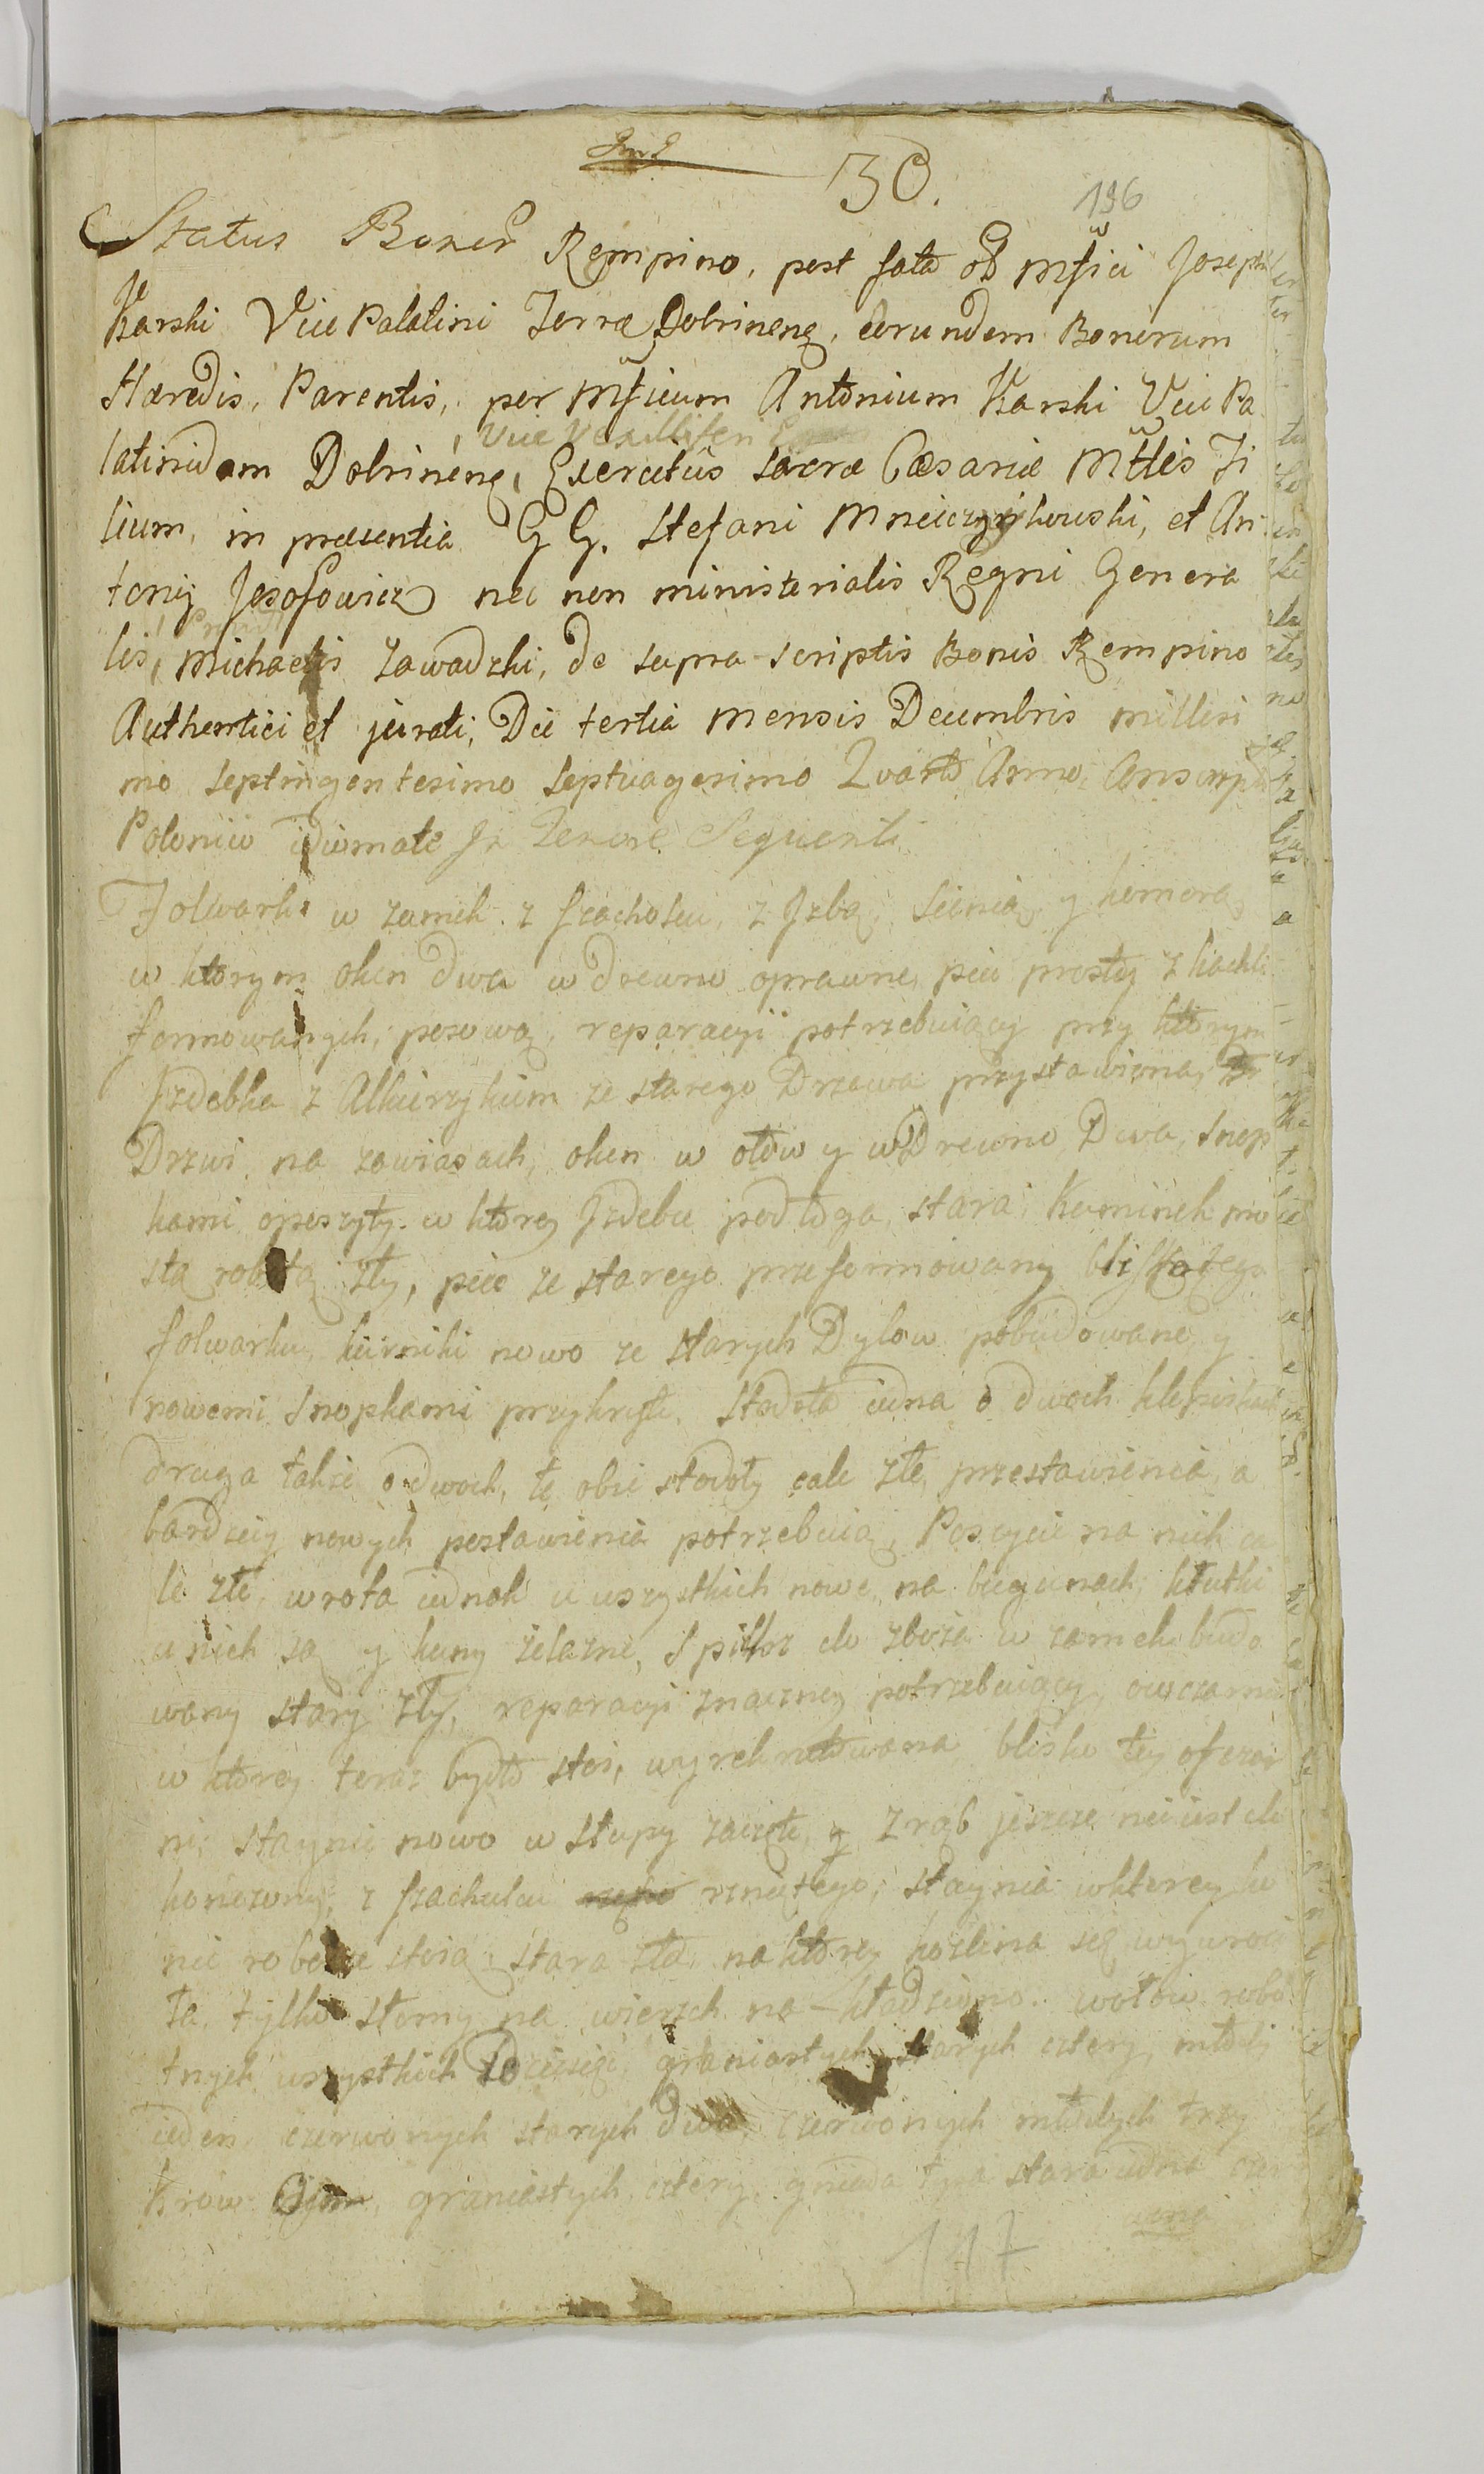 30.
196
Status Bonor Rempino, post fata ol Mfici Josephi
Karski Vice Palatini Terræ Dobrinens, eorundem Bonorum
Hæredis, Parentis, per Mficum Antonium Karski Vice Pa
Vice Vexilliferi
latinidam Dobrinens, Exercitus sacræ Cæsariæ Mttis Fi
lium, in præsentia G G. Stefani Mnieczykowski, et An
tonij Josofowicz nec non ministerialis Regni Genera
lis, Michaelis Zawadzki, de supra scriptis Bonis Rempino
Authentici et jurati, Die tertia Mensis Decembris millesi
mo septingentesimo septuagesimo Qvarto Anno,
Polonico idiomate In Tenore Sequenti
Folwark w zamek z szacholcu, z Izbą, sienią, y komorą,
w ktorym oken dwa w drewno oprawne, piec prosty z kachli
formowanych, posową, reparacyi potrzebuiący przy ktorym
Izdebka z Alkierzykiem ze starego Drzewa przystawiona,
Drzwi na zawiasach, oken w ołow y w Drewno Dwa, snop
kami opeszyty w ktorey Izdebce podłoga stara, Kominek pro
stą robotą zły, piec ze starego preformowany blisko tego
folwarku, kurniki nowo ze starych Dylow pobudowane y
nowemi Snopkami przykryte. Stodoła iedna o dwoch klepiskach
druga także o dwoch, te obie stodoły cale złe, przestawienia, a
bardziey nowych postawienia potrzebuią, Poszycie na nich ca
le złe, wrota iednak u wszystkich nowe, na biegunach, kłutki
u nich są y kuny żelazne, Spiklrz do zboża w zamek budo
wany stary zły, reparacyi znaczney potrzebuiący, owczarnia
w ktorey teraz bydło stoi, wyrehntowana blisko tey ofczar
ni, staynie nowo w słupy zaczęte, y zrąb jeszcze nie iest do
kończony, z szachulcu rzniętego; staynia w ktorey ko
nie robocze stoią, stara zła, na ktorey koźlina się wywroci
ła, tylko słomy na wierzch na-kładziono. wołow robo
tnych wszystkich Dziesięć, graniastych starych cztery, młody
ieden, czerwonych starych dwa, czerwonych młodych trzy
Krow Ośm, graniastych cztery, gniada łysa stara iedna czer
wona
117